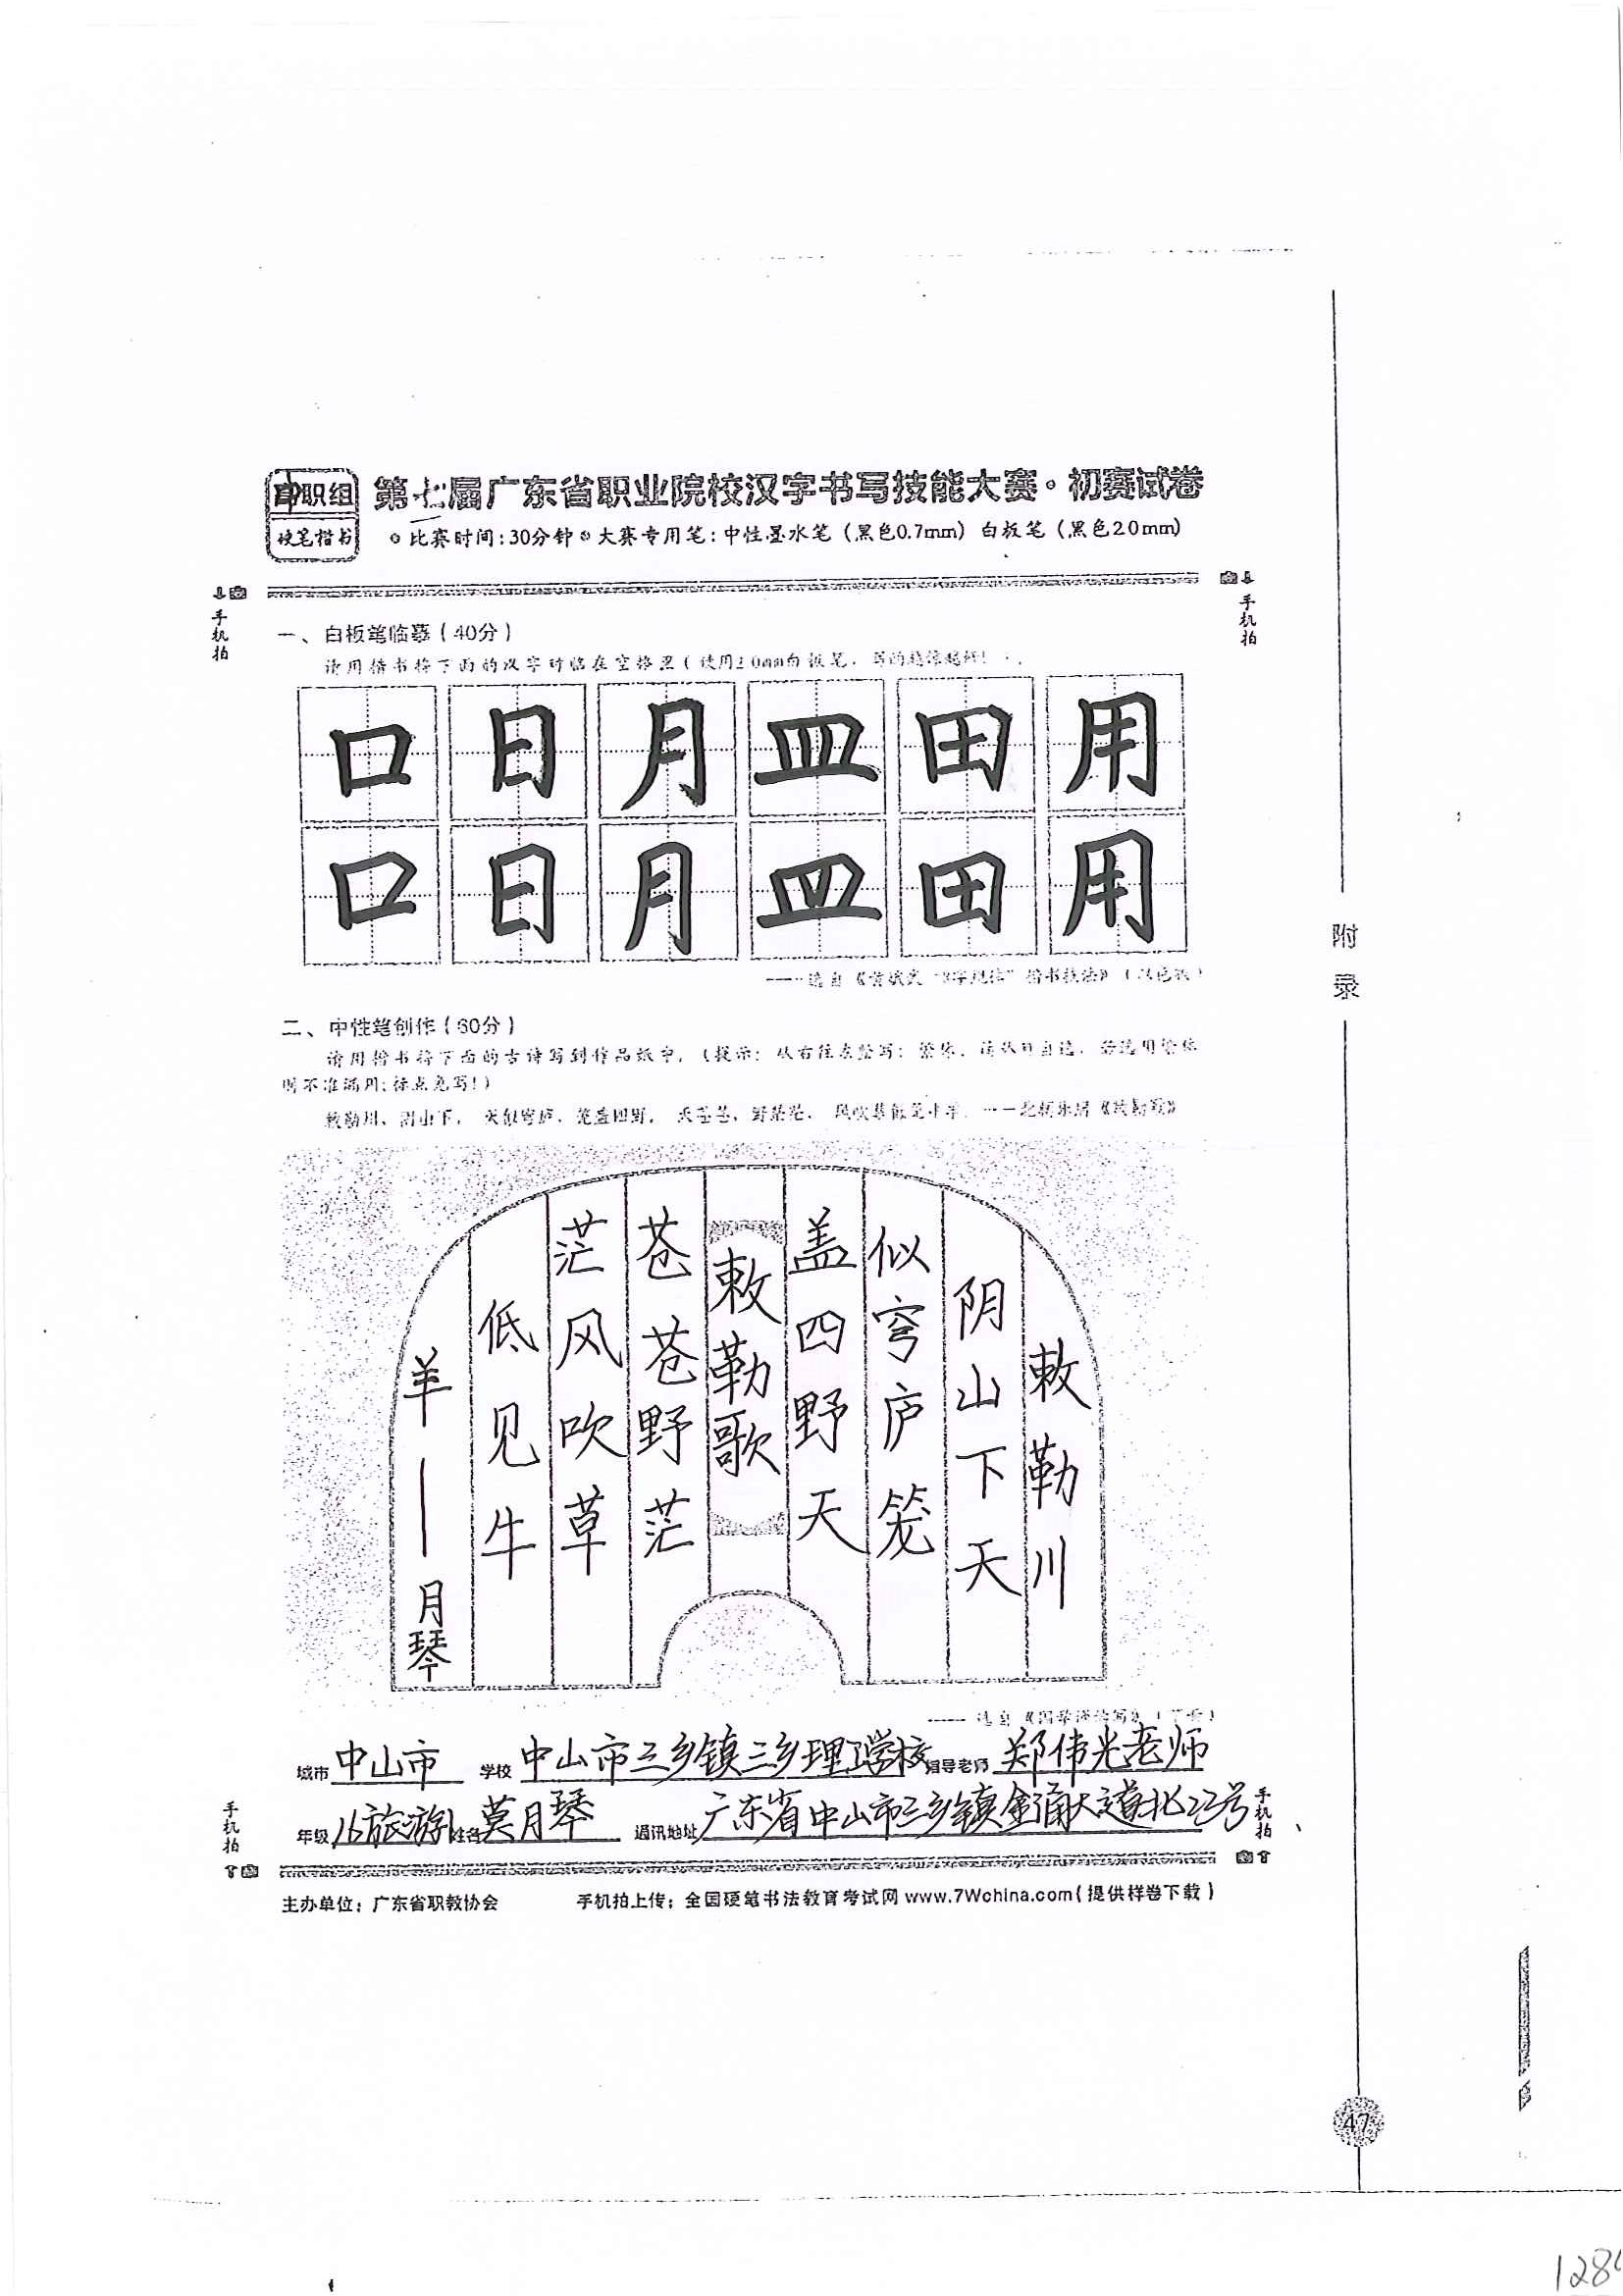 中职组
硬笔楷书
第七届广东省职业院校汉字书写技能大赛·初赛试卷
比赛时间：30分钟 大赛专用笔：中性墨水笔（黑色0.7mm）白板笔（黑色2.0mm）
手机拍
手机拍
一、白板笔临摹（40分）
请用楷书将下面的汉字对临在空格里（使用2.0mm白板笔，
口日月皿田用
口日月皿田用
二、中性笔创作（60分）
请用楷书将下面的古诗写到作品纸中，（提示：从右往左竖写；繁体、
时不准混用；标点免写！）
敕勒川，阴山下，天似穹庐，笼盖四野，天苍苍，野茫茫，风吹草低见牛羊。
敕勒川
阴山下天
似穹庐笼
盖四野天
敕勒歌
苍苍野茫
茫风吹草
低见牛
羊——月琴
城市 中山市 学校 中山市三乡镇三乡理工学校 指导老师 郑伟光老师
年级 16旅游1 姓名 莫月琴 通讯地址 广东省中山市三乡镇金涌大道北22号
手机拍
手机拍
主办单位：广东省职教协会 手机拍上传：全国硬笔书法教育考试网 www.7Wchina.com（提供样卷下载）
附录
47